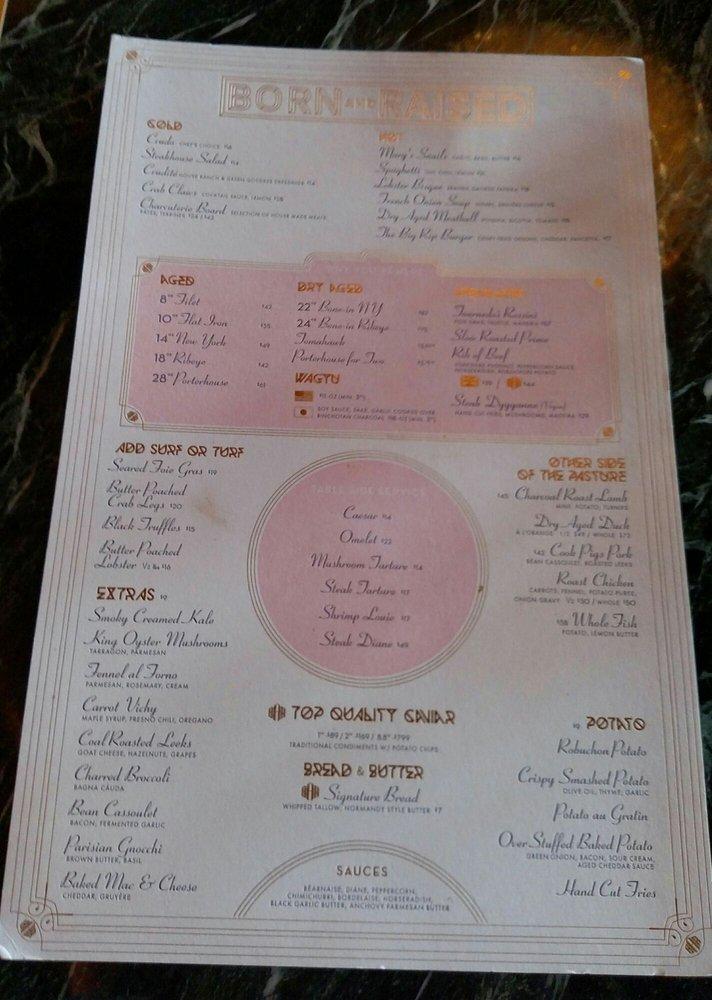 BORN AND RAISED
COLD
Crudo CHEF'S CHOICE
Steakhouse Salad
Crudité HOUSE RANCH & GREEN GODDESS
Crab Claws COCKTAIL SAUCE, LEMON
Charcuterie Board SELECTION OF HOUSE MADE MEATS,
PATES, TERRINES
HOT
Mary's Snails GARLIC, BUTTER
Spaghetti
Lobster Bisque
French Onion Soup
Dry Aged Meatball RICOTTA, TOMATO
The Big Rip Burger CRISPY FRIED ONIONS, CHEDDAR, PANCETTA
AGED
8oz Filet
10oz Flat Iron
14oz New York
18oz Ribeye
28oz Porterhouse
DRY AGED
22oz Bone-in NY
24oz Bone-in Ribeye
Tomahawk
Porterhouse for Two
WAGYU
SOY SAUCE, SAKE, GARLIC COOKED OVER
BINCHOTAN CHARCOAL
Tournedos Rossini
FOIE GRAS, TRUFFLE, MADEIRA
Slow Roasted Prime
Rib of Beef
YORKSHIRE PUDDING, PEPPERCORN SAUCE
HORSERADISH, ROBUCHON POTATO
Steak Dyyganne (Vegan)
HAND CUT FRIES, MUSHROOMS, MADEIRA
ADD SURF OR TURF
Seared Foie Gras $19
Butter Poached
Crab Legs $20
Black Truffles $15
Butter Poached
Lobster ½ lb $16
EXTRAS $9
Smoky Creamed Kale
King Oyster Mushrooms
TARRAGON, PARMESAN
Fennel al Forno
PARMESAN, ROSEMARY, CREAM
Carrot Vichy
MAPLE SYRUP, FRESNO CHILI, OREGANO
Coal Roasted Leeks
GOAT CHEESE, HAZELNUTS, GRAPES
Charred Broccoli
BAGNA CAUDA
Bean Cassoulet
BACON, FERMENTED GARLIC
Parisian Gnocchi
BROWN BUTTER, BASIL
Baked Mac & Cheese
CHEDDAR, GRUYÈRE
TABLESIDE SERVICE
Caesar $14
Omelet $22
Mushroom Tartare $14
Steak Tartare $17
Shrimp Louie $17
Steak Diane $49
TOP QUALITY CAVIAR
1oz $89 / 2oz $169 / 8.8oz $799
TRADITIONAL CONDIMENTS W/ POTATO CHIPS
BREAD & BUTTER
Signature Bread
WHIPPED TALLOW, NORMANDY STYLE BUTTER $7
SAUCES
BÉARNAISE, DIANE, PEPPERCORN,
CHIMICHURRI, BORDELAISE, HORSERADISH,
BLACK GARLIC BUTTER, ANCHOVY PARMESAN BUTTER
OTHER SIDE
OF THE PASTURE
$45 Charcoal Roast Lamb
MINT, POTATO, TURNIPS
Dry Aged Duck
À L'ORANGE 1/2 $49 / WHOLE $72
$42 Cook Pigs Pork
BEAN CASSOULET, ROASTED LEEKS
Roast Chicken
CARROTS, FENNEL, POTATO PUREE,
ONION GRAVY ½ $30 / WHOLE $50
$58 Whole Fish
POTATO, LEMON BUTTER
$9 POTATO
Robuchon Potato
Crispy Smashed Potato
OLIVE OIL, THYME, GARLIC
Potato au Gratin
Over Stuffed Baked Potato
GREEN ONION, BACON, SOUR CREAM,
AGED CHEDDAR SAUCE
Hand Cut Fries